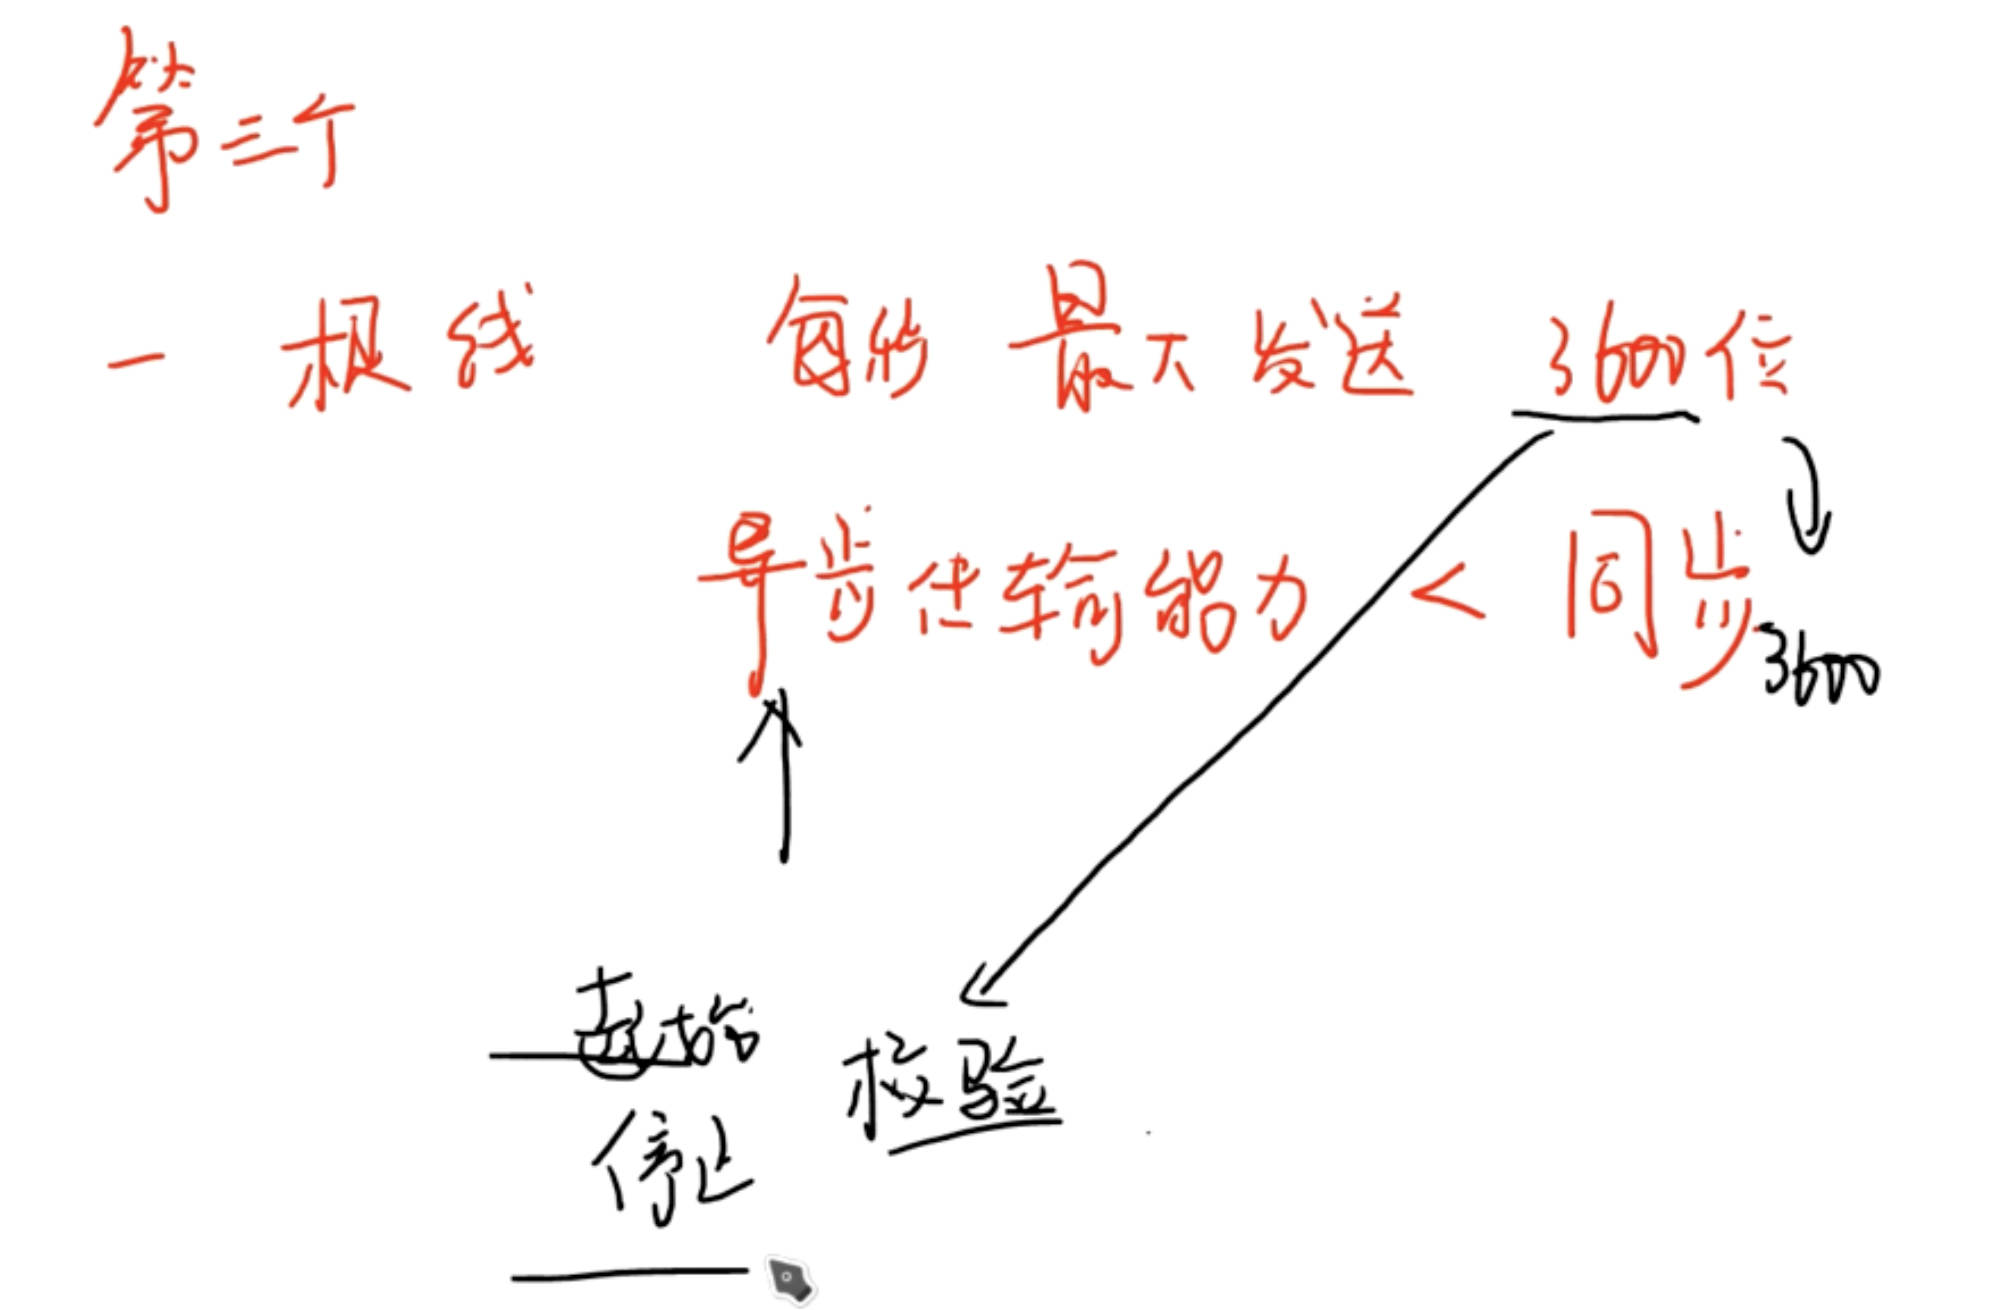 第三个
一根线 每秒最大发送 3600位
异步传输能力 < 同步
3600
起始 校验
停止